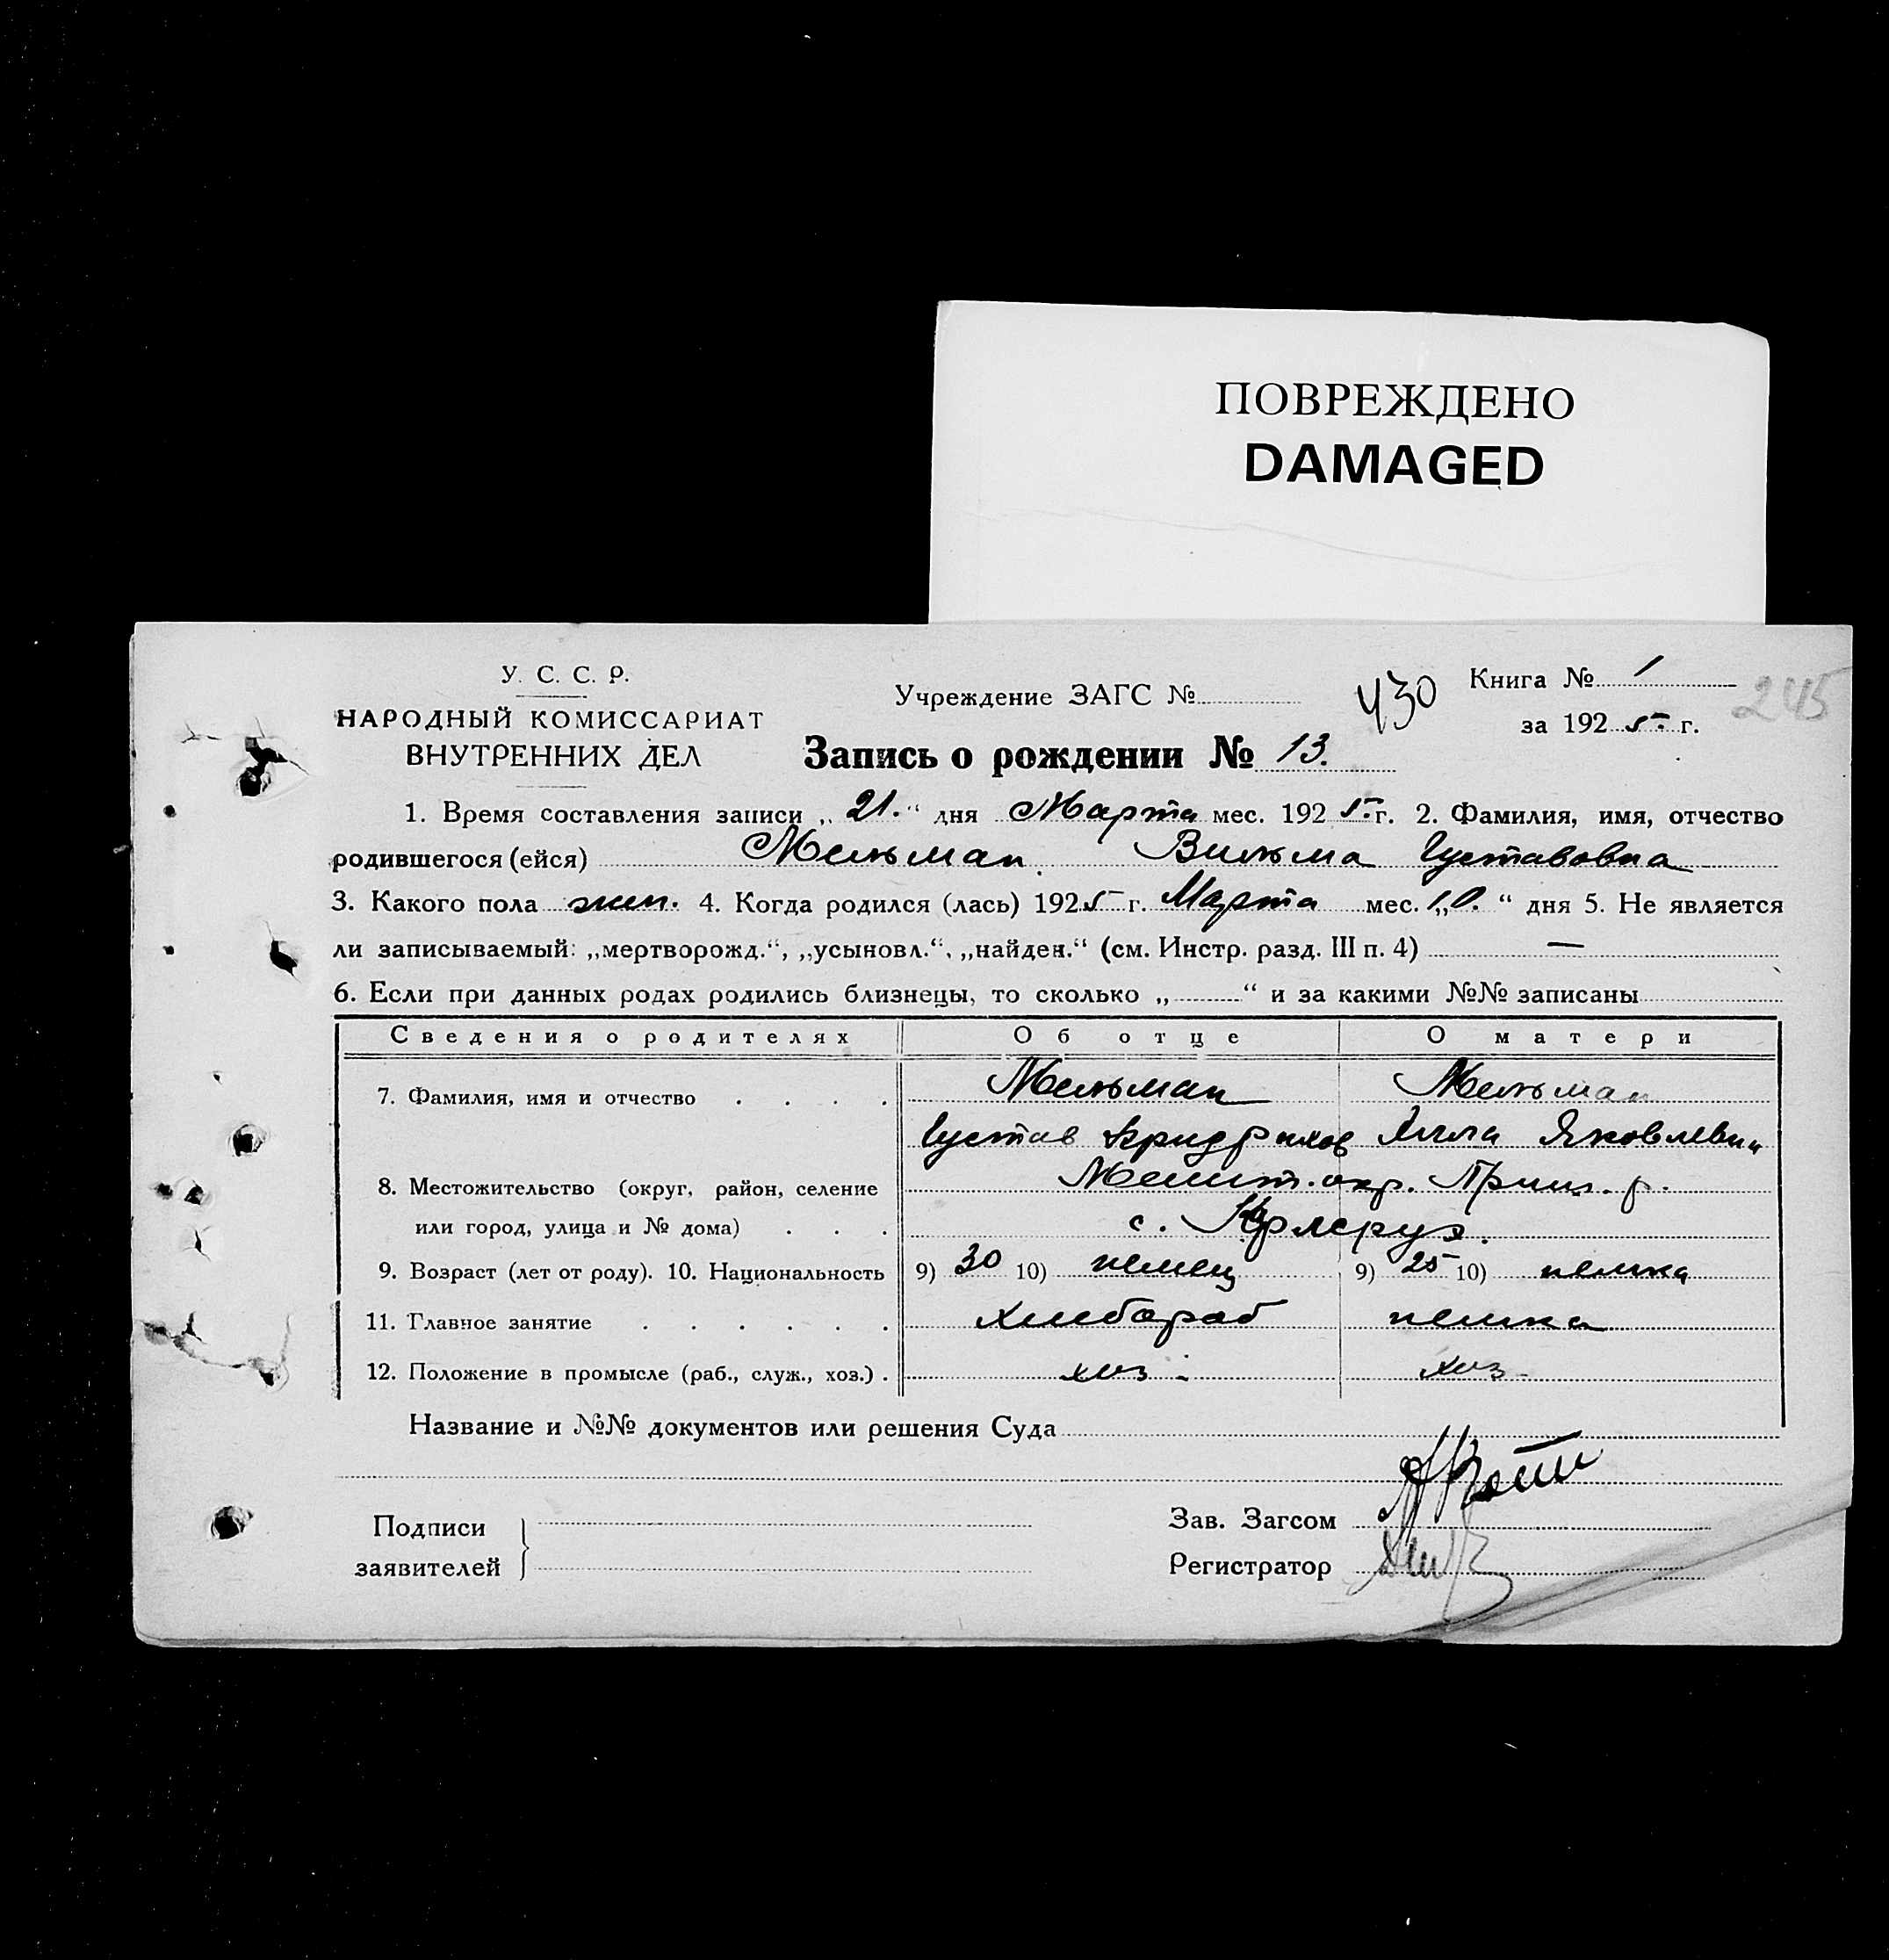 ПОВРЕЖДЕНО
DAMAGED
У. С. С. Р.
НАРОДНЫЙ КОМИССАРИАТ
ВНУТРЕННИХ ДЕЛ
Учреждение ЗАГС №
430
Книга № 1
за 1925 г.
245
Запись о рождении № 13.
1. Время составления записи „21.“ дня Марта мес. 1925 г. 2. Фамилия, имя, отчество
родившегося (ейся) Мельман Вильма Густавовна
3. Какого пола жен. 4. Когда родился (лась) 1925 г. Марта мес. „10.“ дня 5. Не является
ли записываемый: „мертворожд.“, „усыновл.“, „найден.“ (см. Инстр. разд. III п. 4) —
6. Если при данных родах родились близнецы, то сколько „ “ и за какими №№ записаны
Сведения о родителях Об отце О матери
7. Фамилия, имя и отчество Мельман Мельман
Густав Яковлевн
8. Местожительство (округ, район, селение Мелит. окр. Приш. р.
или город, улица и № дома) с. Карлсруэ.
9. Возраст (лет от роду). 10. Национальность 9) 30 10) немец 9) 25 10) немка
11. Главное занятие хлебораб немка
12. Положение в промысле (раб., служ., хоз.) хоз. хоз
Название и №№ документов или решения Суда
Подписи
заявителей
Зав. Загсом
Регистратор